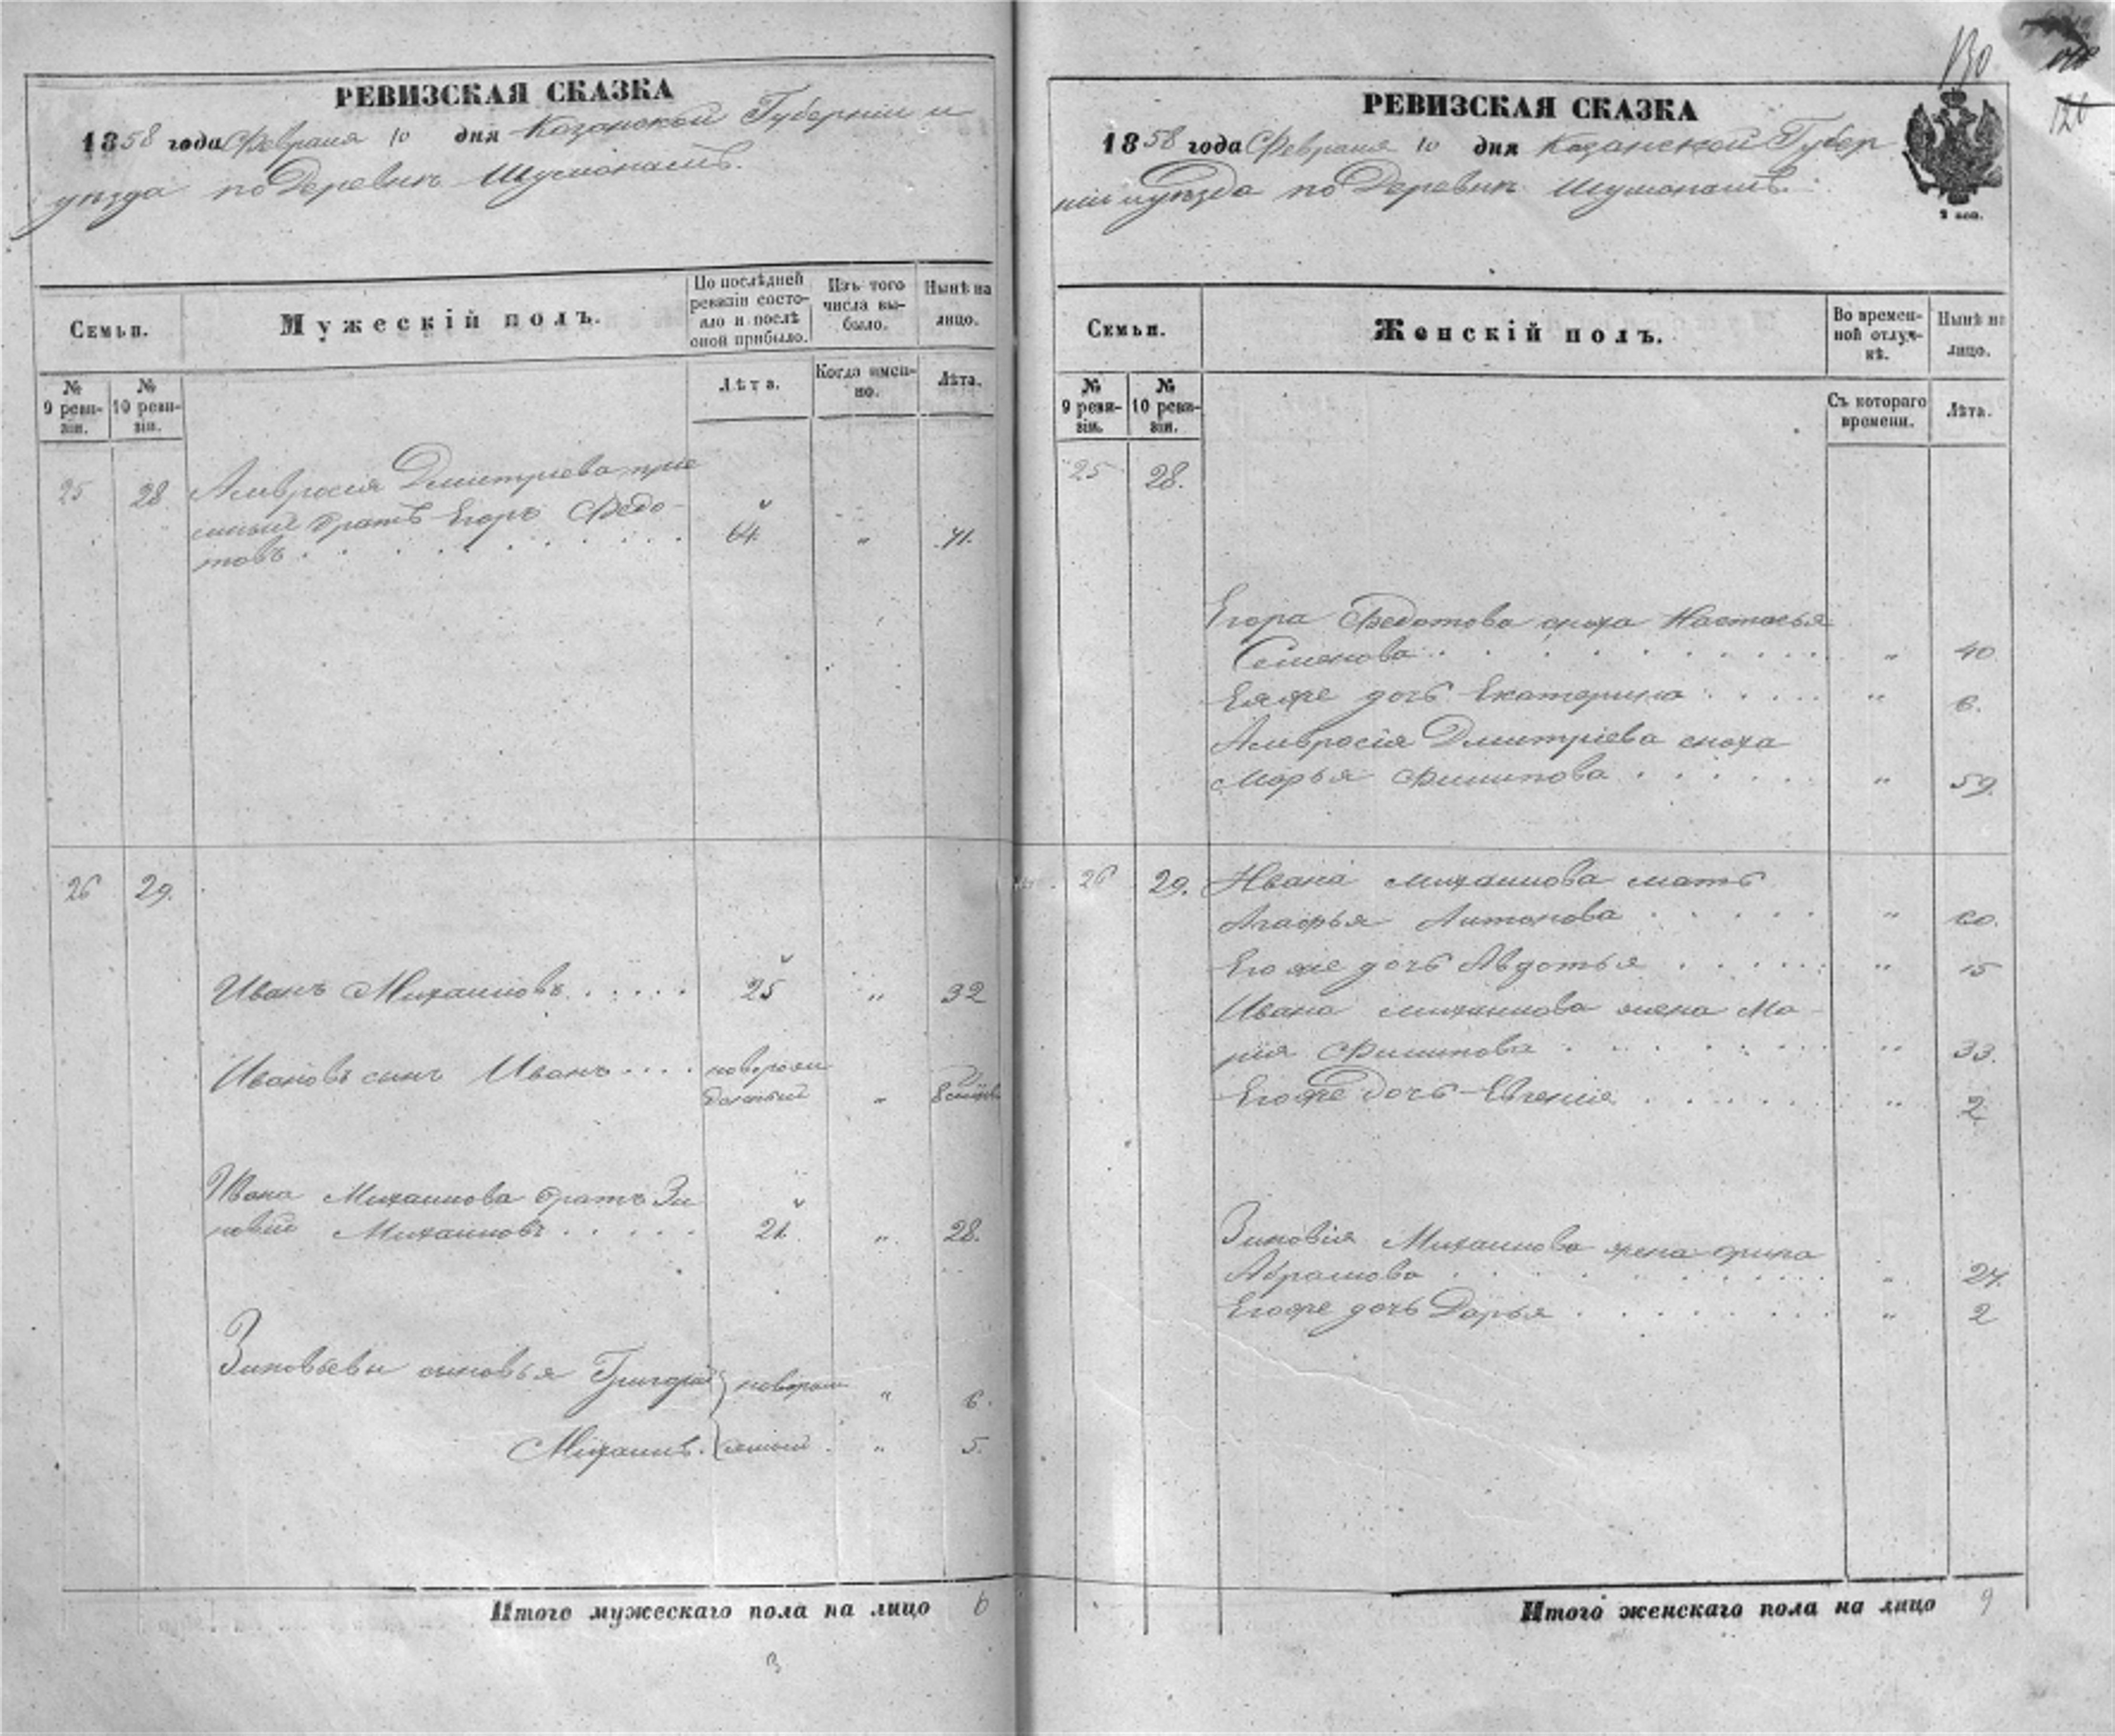 РЕВИЗСКАЯ СКАЗКА
1858 года Февраля 10 дня Казанской Губерніи и
уѣзда по Деревни
Семьи.
Мужескій полъ.
По послѣдней ревизіи состояло и послѣ оной прибыло.
Изъ того числа выбыло.
Нынѣ на лицо.
№ 9 ревизіи.
№ 10 ревизіи.
Лѣта.
Когда именно.
Лѣта.
25 28 Амвросія Дмитріева прiе
мный братъ Егоръ Федо-
товъ 64. " 71.
26 29.
Иванъ Михайловъ 25 " 32
Ивановъ сынъ Иванъ новорож
денный "
Ивана Михайлова братъ Зи
новій Михайловъ 21. " 28.
Зиновьевы сыновья Григорій новорож " 6.
Михаилъ. денный " 5.
Итого мужескаго пола на лицо 6
3
130
РЕВИЗСКАЯ СКАЗКА
1858 года Февраля 10 дня Казанской Губер
ніи и уѣзда по Деревни
2 коп.
Семьи.
Женскій полъ.
Во временной отлучкѣ.
Нынѣ на лицо.
№ 9 ревизіи.
№ 10 ревизіи.
Съ котораго времени.
Лѣта.
25 28.
Егора Федотова сноха Настасья
Семенова " 40
Ея же дочь Екатерина " 6.
Амвросія Дмитріева сноха
Марья Филипова " 59.
26 29. Ивана Михайлова мать
Агафья Антонова " 60.
Его же дочь Авдотья " 15
Ивана Михайлова жена Ма-
рия Филипова " 33.
Его же дочь Евгенія " 2
Зиновія Михайлова жена Орина
Абрамова " 24.
Его же дочь Дарья " 2
Итого женскаго пола на лицо 9